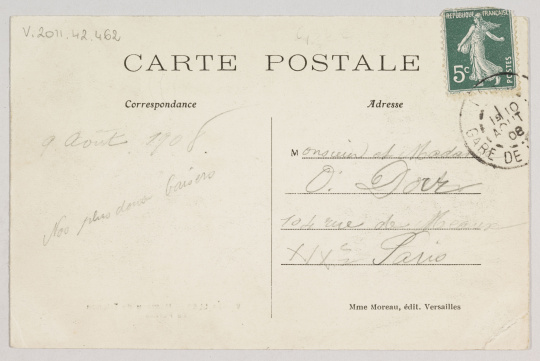 V.2011.42.462
RÉPUBLIQUE FRANÇAISE
5c
POSTES
CARTE POSTALE
Correspondance
Adresse
10
AOUT
08
GARE DE
9 Août 1908
Monsieur et Madame
Nos plus doux baisers
104 rue de Meaux
XIXe Paris
Mme Moreau, édit. Versailles